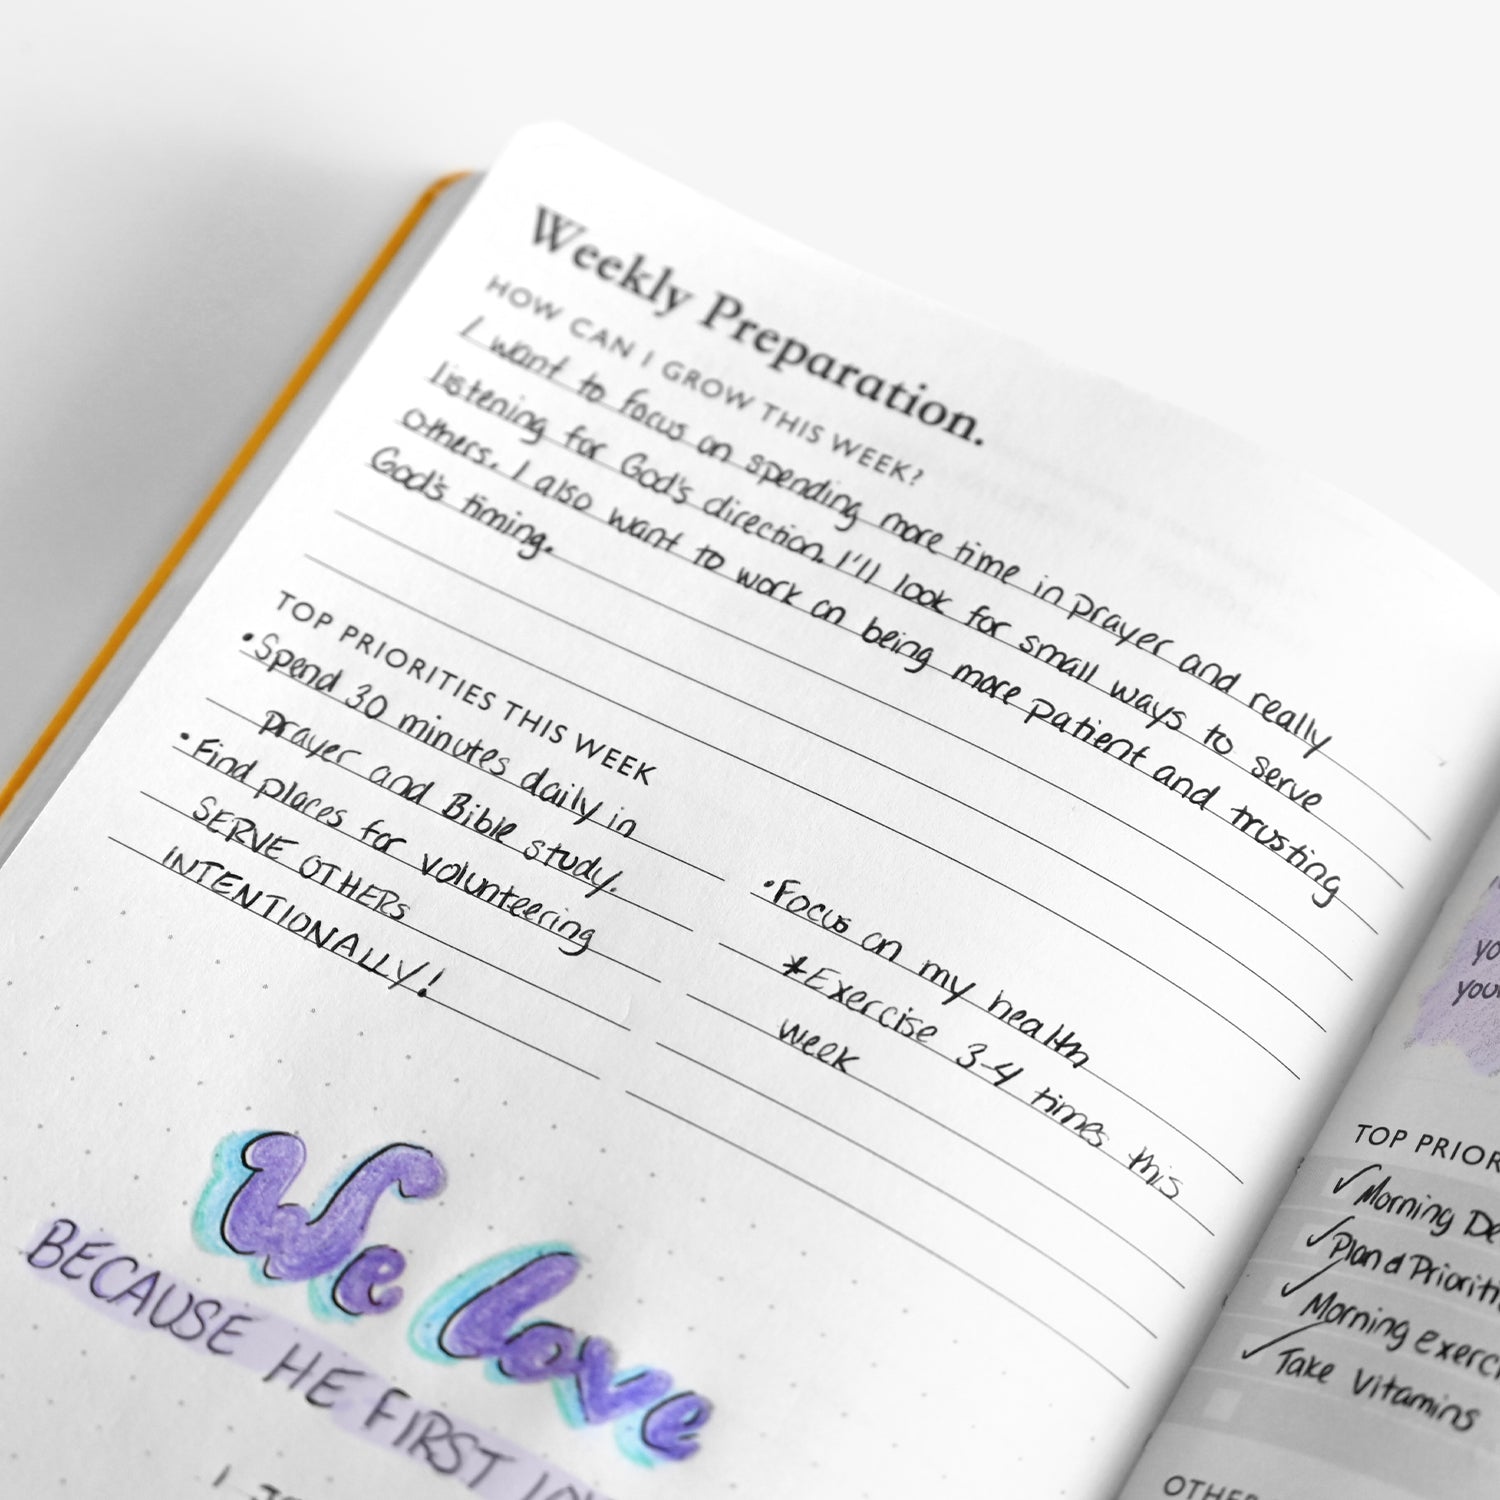 Weekly Preparation.
HOW CAN I GROW THIS WEEK?
I want to focus on spending more time in prayer and really
listening for God's direction. I'll look for small ways to serve
others. I also want to work on being more patient and trusting
God's timing.
TOP PRIORITIES THIS WEEK
•Spend 30 minutes daily in
prayer and Bible study.
•Find places for volunteering
SERVE OTHERS
INTENTIONALLY!
•Focus on my health
*Exercise 3-4 times this
week
We love
BECAUSE HE FIRST
TOP
✓Morning
✓Plan d
✓Morning
✓Take Vitamins